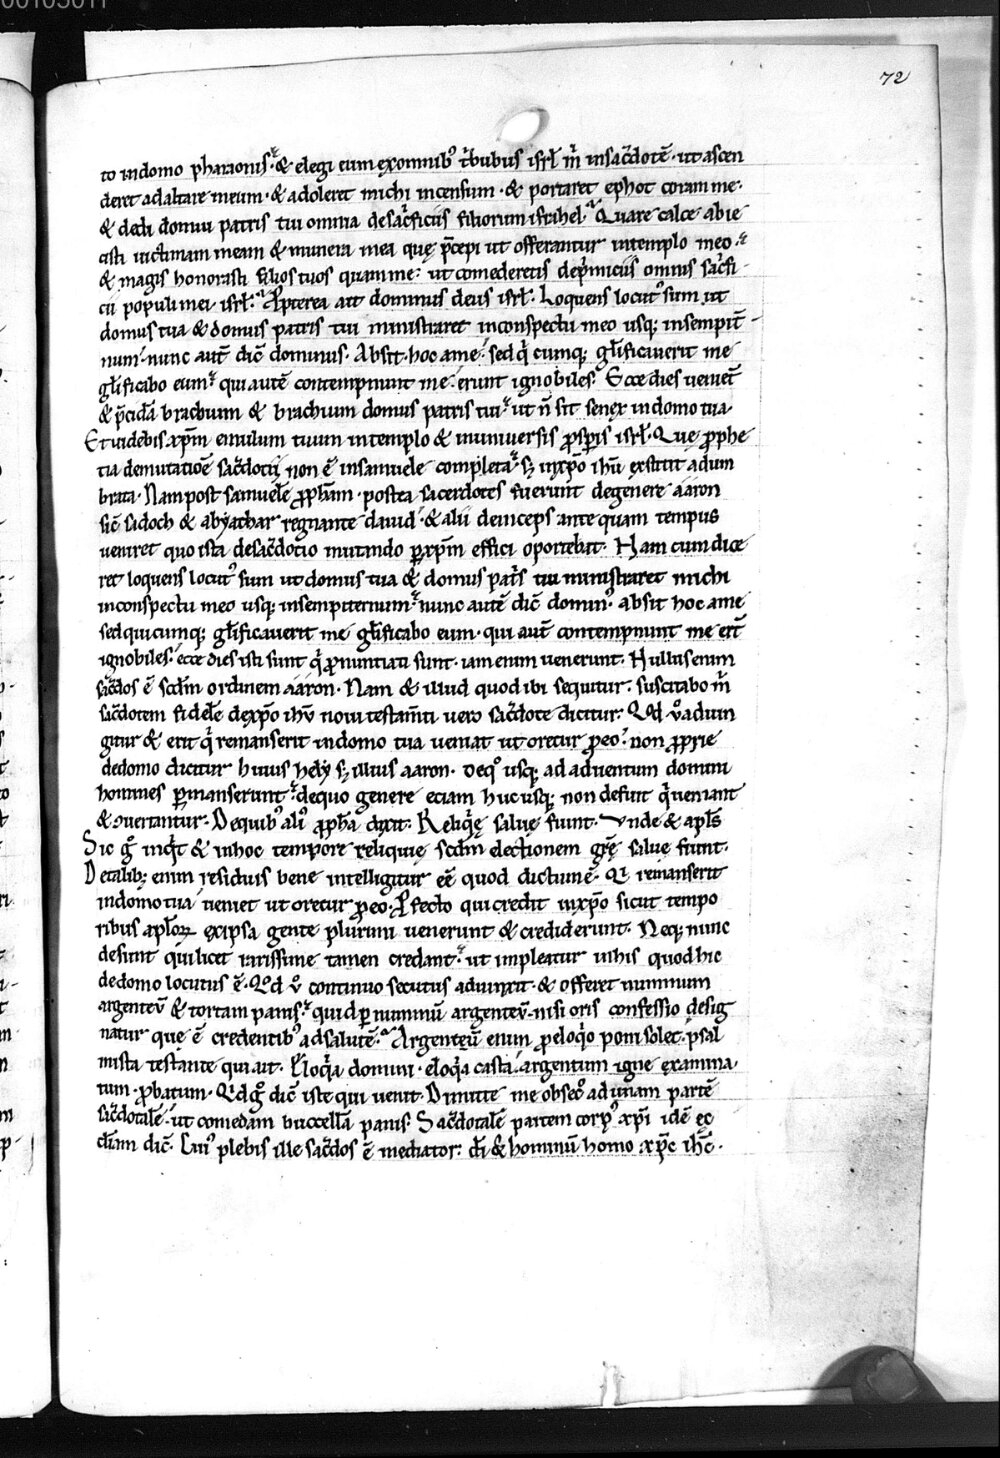 00103011
72
to indomo pharaonis. & elegi eum exomnibꝰ tͥbubus isrł m̅ insac̃dotē. ut ascen
deret adaltare meum. & adoleret michi incensum. & portaret ephot coram me.
& dedi domui patris tui omnia desac̃ficiis filiorum isrihel. Quare calce abie
cisti uictimam meam & munera mea quę p̅cepi ut offerantur intemplo meo.
& magis honorasti filios tuos quam me. ut comederetis dep̅miciis omnis sac̃fi
cii populi mei isrł. Ꝓpterea ait dominus deus isrł. Loquens locutꝰ sum ut
domus tua & domus patris tui ministraret inconspectu meo usq; insempit̅
num. nunc aut̅ dic̅ dominus. Absit hoc a me. sed qͥ cumq; gł̅ificauerit me
gł̅ificabo eum. qui autē contempnunt me. erunt ignobiles. Ecce dies ueniet̅
& p̅cidā brachium & brachium domus patris tui. ut n̅ sit senex indomo tua.
Et uidebis xp̅m emulum tuum intemplo & inuniuersis ꝓsp̅is isrł. Que ꝓphe
tia demutatiōe sac̃dotii non ē insamuele completa. s; inxp̅o ih̅u exstitit adum
brata. Nam post samuelē ꝓph̅am. postea sacerdotes fuerunt degenere aaron
sic̅ sadoch & abyathar regnante dauid. & alii deinceps ante quam tempus
ueniret quo ista desac̃dotio mutando ꝑxp̅m effici oportebat. Nam cum dice
ret loquens locutꝰ sum ut domus tua & domus pat̅s tui ministraret michi
inconspectu meo usq; insempiternum. nunc autē dic̅ dominꝰ. absit hoc a me
sed quicumq; gł̅ificauerit me gł̅ificabo eum. qui aut̅ contempnunt me er̅t
ignobiles. ecce dies isti sunt qͥ ꝓnuntiati sunt. iam enim uenerunt. Nullus enim
sac̃dos ē scd̅m ordinem aaron. Nam & illud quod ibi sequitur. suscitabo m̅
sac̃dotem fidelē dexp̅o ih̅u noui testam̅ti uero sac̃dote dicitur. Qd̅ u̅o adiun
gitur & erit qͥ remanserit indomo tua ueniat ut oretur ꝓeo. non ꝓprie
dedomo dicitur huius hely s; illius aaron. deqͦ usq; ad aduentum domini
homines ꝑmanserunt. dequo genere eciam huc usq; non defuit qͥ ueniant
& ꝯuertantur. Dequibꝰ aliͥ ꝓph̅a dixit. Reliqͥę saluę fiunt. Vnde & apł̅s
Sic g̊ inqͥt & inhoc tempore reliquię scd̅m electionem gr̅ę saluę fiunt.
Detalib; enim residuis bene intelligitur eē quod dictum ē. Qͥ remanserit
indomo tua ueniet ut oretur ꝓeo. Ꝓfecto qui credit inxp̅o sicut tempo
ribus apł̅oꝝ exipsa gente plurimi uenerunt & crediderunt. Neq; nunc
desunt qui licet rarissime tamen credant. ut impleatur inhis quod hic
dedomo locutus ē. Qd̅ u̅o continuo secutus adiunxit. & offeret nummum
argenteū & tortam panis. quid ꝑ nummū argenteū. nisi oris confessio desig
natur que ē credentibꝰ adsalutē. Argenteū enim ꝓeloqͥo poni solet. psal
mista testante qui ait. Eloqͥa domini. eloqͥa casta. argentum igne examina
tum. ꝓbatum. Qͥd g̊ dic̅ iste qui uenit. Dimitte me obsecͦ ad unam partē
sac̃dotalē. ut comedam buccellā panis. Sac̃dotalē partem corpꝰ xp̅i idē ec
cł̅iam dic̅. Cuiͥ plebis ille sac̃dos ē mediator. di̅ & hominū homo xp̅c ih̅c.